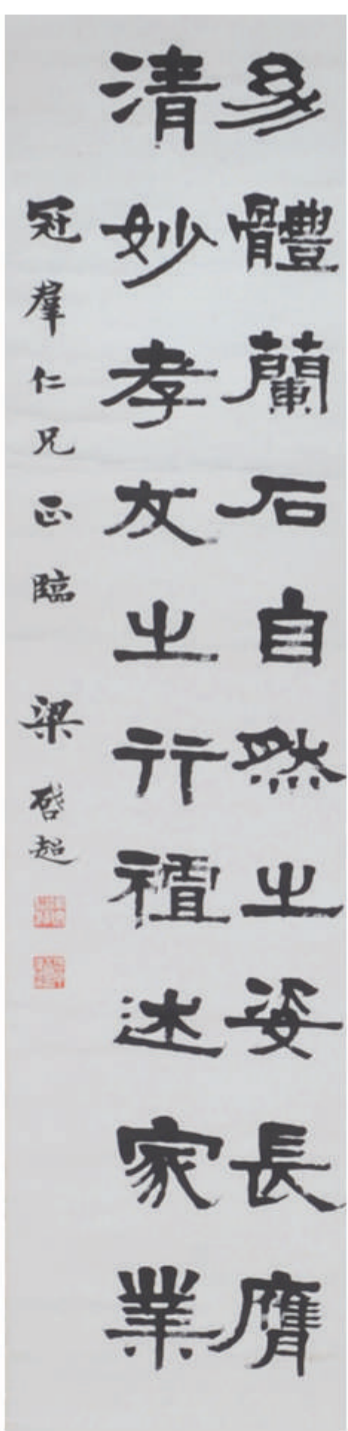 幼體蘭石自然之姿長膺
清妙孝友之行述家業
冠羣仁兄正臨 梁啓超